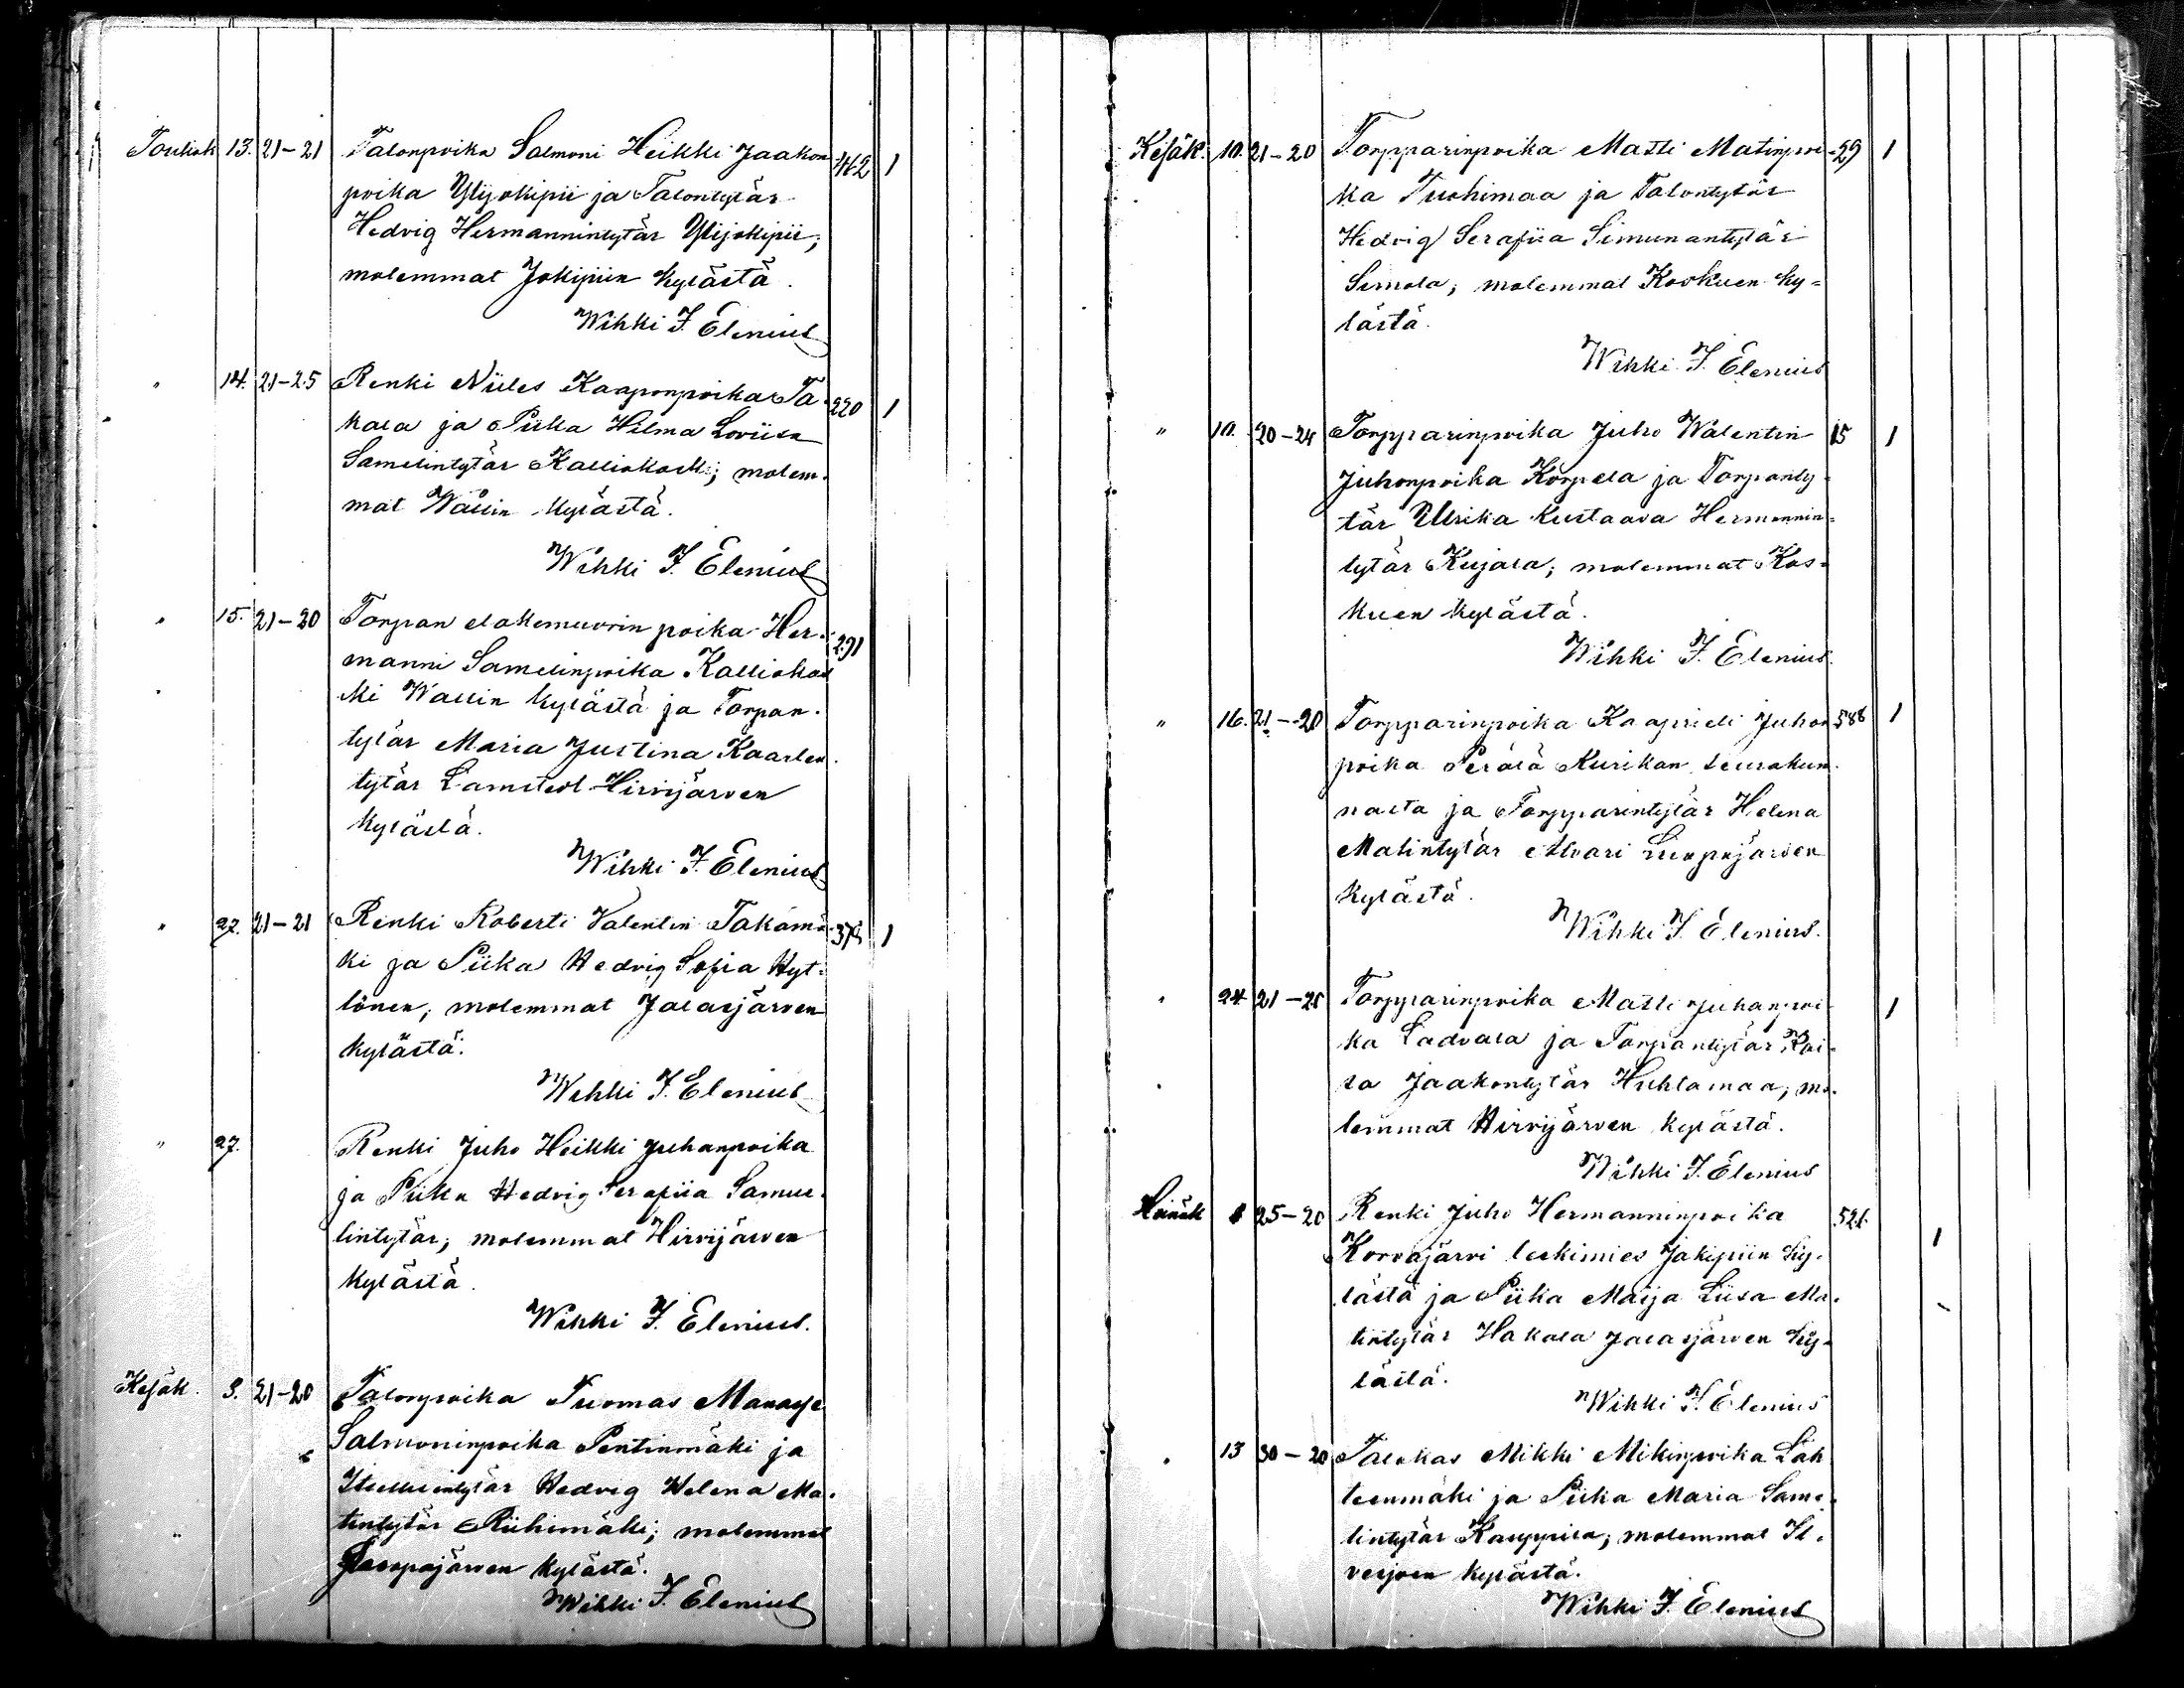 Toukok 13. 21-21 Talonpoika Salmoni Heikki Jaakon- 462 1
poika Ylijokipii ja Talontytär
Hedvig Hermannintytär Ylijokipii,
molemmat Jokipiin kylästä.
Wihki F. Elenius
" 14. 21-25 Renki Niiles Kaaponpoika Ta- 220 1
kala ja Piika Hilma Loviisa
Samelintytär Kalliokoski; molem-
mat Wallin kylästä.
Wihki F. Elenius
" 15. 21-20 Torpan elakemuorin poika Her- 291
manni Samelinpoika Kalliokos
ki Wallin kylästä ja Torpan-
tytär Maria Justina Kaarlen
tytär Lamsted Hirvijärven
kylästä.
Wihki F. Elenius
" 27. 21-21 Renki Roberti Valentin Takamä- 1
ki ja Piika Hedvig Sofia Hyt-
tönen, molemmat Jalasjärven
kylästä.
Wihki F. Elenius
" 27. Renki Juho Heikki Juhanpoika
ja Piika Hedvig Serafiia Samue-
lintytär, molemmat Hirvijärven
kylästä.
Wihki F. Elenius.
Kesäk. 3. 21-20 Talonpoika Tuomas Manasse
Salmoninpoika Pentinmäki ja
Itsellisintytär Hedvig Helena Ma-
tintytär Riihimäki; molemmat
Luopajärven kylästä.
Wihki F. Elenius
Kesäk. 10. 21-20 Torpparinpoika Matti Matinpoi- 29 1
ka Tuohimaa ja Talontytär
Hedvig Serafiia Simunantytär
Simola, molemmat Koskuen ky=
lästä.
Wihki F. Elenius
" 10. 20-24 Torpparinpoika Juho Walentin 15 1
Juhonpoika Korpela ja Torpanty-
tär Ulrika Kustaava Hermannin=
tytär Kujala; molemmat Kos=
kuen kylästä.
Wihki F. Elenius.
" 16. 21-20 Torpparinpoika Kaaprieli Juhon 588 1
poika Perälä Kurikan seurakun-
nasta ja Torpparintytär Helena
Matintytär Alvari Luopajärven
kylästä.
Wihki F. Elenius.
" 24 Torpparinpoika Matti Juhanpoi- 1
ka Ladvala ja Torpantytär Kai-
sa Jaakontytär Huhtamaa, mo-
lemmat Hirvijärven kylästä.
Wihki F. Elenius
Heinäk 25-20 Renki Juho Hermanninpoika 521. 1
Korvajärvi leskimies Jokipiin ky-
lästä ja Piika Maija Liisa Ma-
tintytär Hakala Jalasjärven ky-
lästä.
Wihki F. Elenius
" 13 30-20 Talokas Mikki Mikinpoika Läh
teenmäki ja Piika Maria Same-
lintytär Kauppila, molemmat Il-
vesjoen kylästä.
Wihki F. Elenius